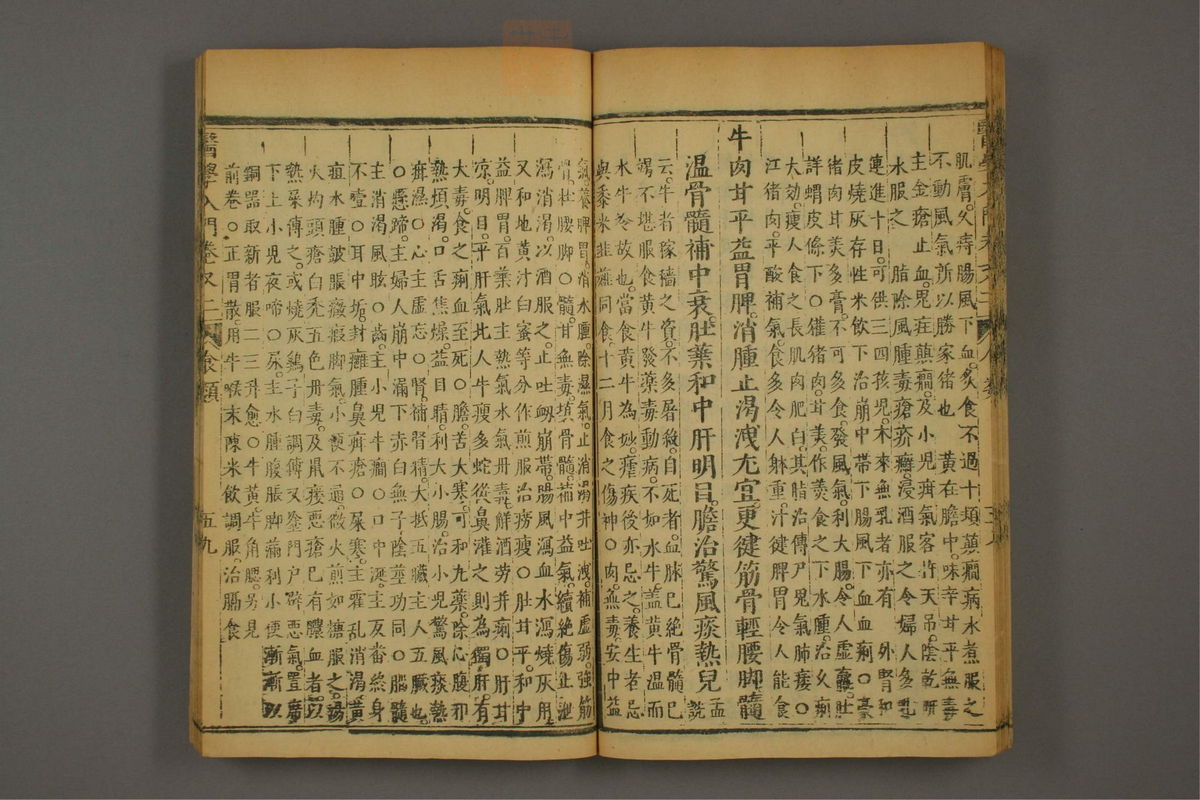 肌膚。久痔腸風下血。多人食不過十頓。顛癇病水煮服之
不動風氣所以勝家猪也　黃在膽中。味辛甘平無毒
主金瘡止血。鬼疰癲癇。及小兒疳氣客忤天吊。陰乾研
水服之　脂除風腫毒瘡疥癬。浸酒服之令婦人多乳
連進十日。可供三四孩兒。本來無乳者亦有　外腎和
皮燒灰存性米飲下治崩中帶下腸風下血血痢○豪
猪肉甘美多膏。不可多食。發風氣。利大腸。令人虛羸。肚
詳蝟皮條下○㹠猪肉。甘美。作羹食之下水腫。治久痢
大効。瘦人食之長肌肉肥白。其脂治傳尸鬼氣肺痿○
江猪肉。平酸補氣。食多令人躰重。汁健脾胃令人能食
牛肉甘平益胃脾。消腫止渴洩尤宜。更健筋骨輕腰脚髓
溫骨髓補中衰。肚藥和中肝明目。膽治驚風痰熱兒
孟詵
云。牛者稼穡之資。不多屠殺。自死者。血脉已絕骨髓已
竭不堪服食黃牛發藥毒動病。不如水牛蓋黃牛溫而
水牛冷故也。當食黃牛為妙。瘧疾後亦忌之。養生者忌
與黍米韭薤同食。十二月食之傷神○肉。無毒。安中益
氣。養脾胃消水腫。除濕氣。止消渴并吐洩。補虛弱。強筋
骨壯腰脚○髓。甘無毒。填骨髓。補中益氣。續絕傷止泄
瀉消渴。以酒服之。止吐衂崩帶。腸風瀉血水瀉燒灰用
又和地黃汁白蜜等分作煎服治癆瘦○肚甘平。和中
益脾胃。百藥肚主熱氣水氣丹毒解酒勞并痢○肝甘
涼明目。平肝氣北人牛瘦多蛇從鼻灌之則為獨肝。有
大毒。食之痢血至死○膽。苦大寒。可和丸藥。除心腹邪
熱煩渴。口舌焦燥。益目睛。利大小腸。治小兒驚風痰熱
疳濕○心主虛忘○腎補腎精。大抵五臟主人五臟也
○懸蹄。主婦人崩中漏下赤白無子陰莖功同○腦髓
主消渴風眩○齒。主小兒牛癇○口中涎。主反畨終身
不噎○耳中垢。封癰腫鼻疳瘡○屎寒。主霍亂消渴黃
疸水腫皷脹癥瘕脚氣。小便不通。微火煎如糖服之。湯
火灼頭瘡白禿五色丹毒。及鼠瘻惡瘡已有膿血者以
熱屎傅之。或燒灰鷄子白調傅又塗門戶辟惡氣。置席
下止小兒夜啼○尿。主水腫腹脹脚滿利小便漸漸以
銅器取新者服二三升愈○牛黃。牛角䚡。另見
前卷○正胃散用牛喉末陳米飲調服治膈食
醫學入門卷又二
食類
五九